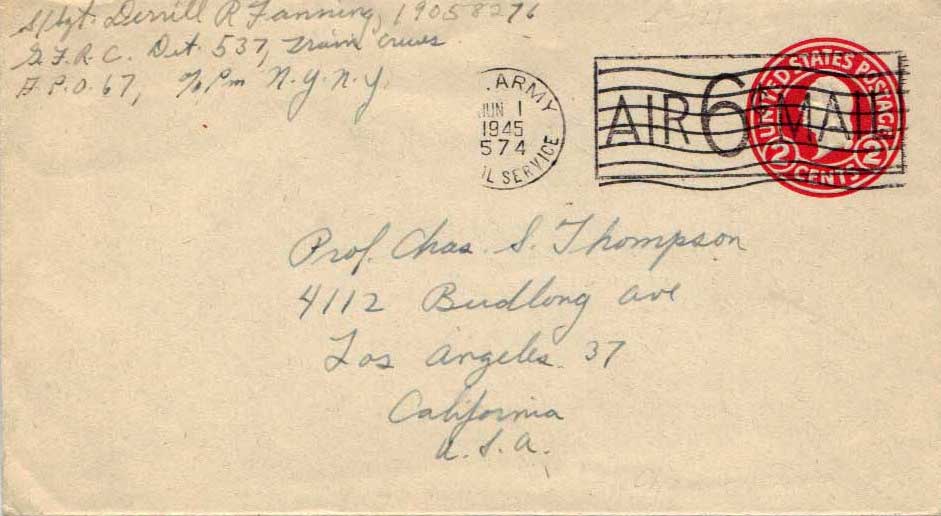 S/Sgt. Derrill R Fanning, 19058276
G.F.R.C. Det. 537, Train Crews
A.P.O. 67, % Pm N.Y. N.Y.
. ARMY
JUN 1
1945
574
IL SERVICE
AIR 6¢ MAIL
UNITED STATES POSTAGE
2 CENTS 2
Prof. Chas. S. Thompson
4112 Budlong Ave
Los Angeles 37
California
U.S.A.